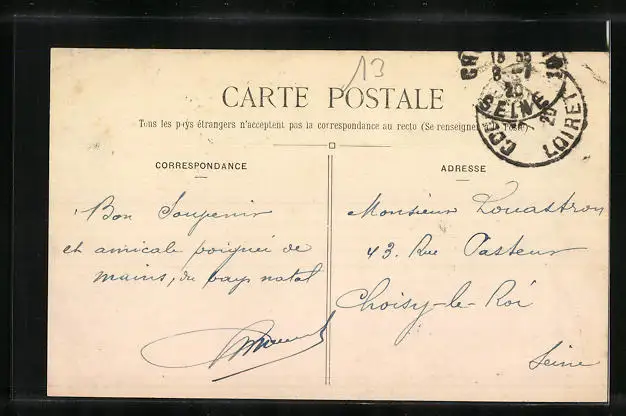 13
CARTE POSTALE
Tous les pays étrangers n'acceptent pas la correspondance au recto (Se renseigner à la Poste)
CORRESPONDANCE
Bon Souvenir
et amicale poignée de
mains, du pays natal
ADRESSE
Monsieur Louastron
43. Rue Pasteur
Choisy-le-Roi
Seine
SEINE
20
LOIRET